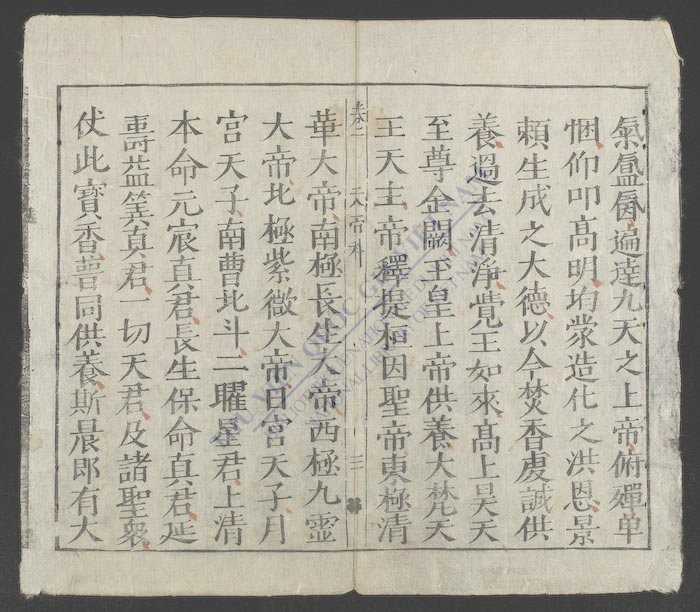 氣氳氤遍達九天之上帝俯殫单
悃仰叩髙明均蒙造化之洪恩景
頼生成之大德以今焚香虔誠供
養過去清淨覺王如來髙上昊天
至尊金闕玉皇上帝供養大梵天
王天主帝釋提桓因聖帝東極清
卷二 天帝科 三
華大帝南極長生大帝西極九靈
大帝北極紫微大帝日宮天子月
宮天子南曹北斗二曜星君上清
本命元宸真君長生保命真君延
壽益筭真君一切天君及諸聖衆
仗此寶香普同供養斯晨郎有大
THƯ VIỆN QUỐC GIA VIỆT NAM
NATIONAL LIBRARY OF VIETNAM